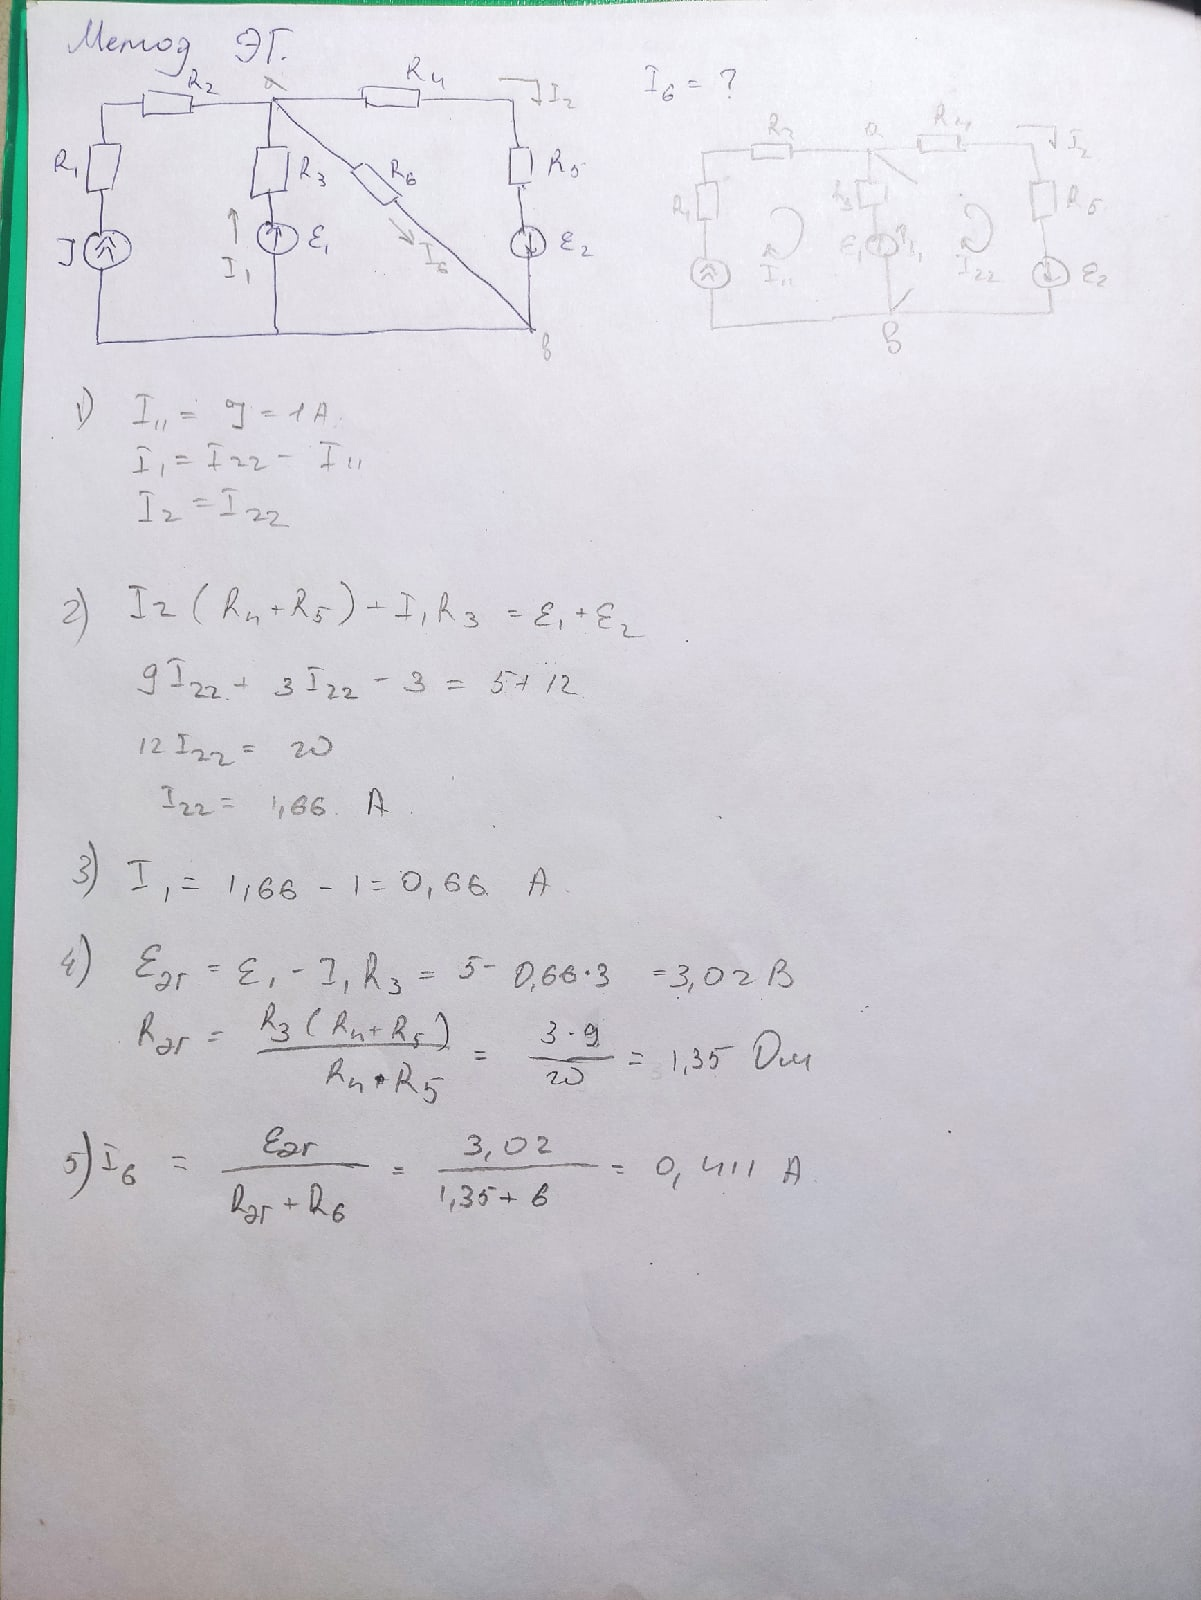 Метод ЭГ.
I₆ = ?
R₂ a R₄ I₂
R₁ R₃ R₆ R₅
J I₁ ℰ₁ I₆ ℰ₂
b
R₂ a R₄ I₂
R₁ R₃ R₅
I₁₁ ℰ₁ I₁ I₂₂ ℰ₂
b
1) I₁₁ = J = 1 A.
I₁ = I₂₂ - I₁₁
I₂ = I₂₂
2) I₂ (R₄ + R₅) + I₁R₃ = ℰ₁ + ℰ₂
9I₂₂ + 3I₂₂ - 3 = 5 + 12
12 I₂₂ = 20
I₂₂ = 1,66. A
3) I₁ = 1,66 - 1 = 0,66. A.
4) ℰэг = ℰ₁ - I₁R₃ = 5 - 0,66·3 = 3,02 В
Rэг = R₃ (R₄ + R₅) / R₄ • R₅ = 3·9 / 20 = 1,35 Ом
5) I₆ = ℰэг / Rэг + R₆ = 3,02 / 1,35 + 6 = 0,411 A.